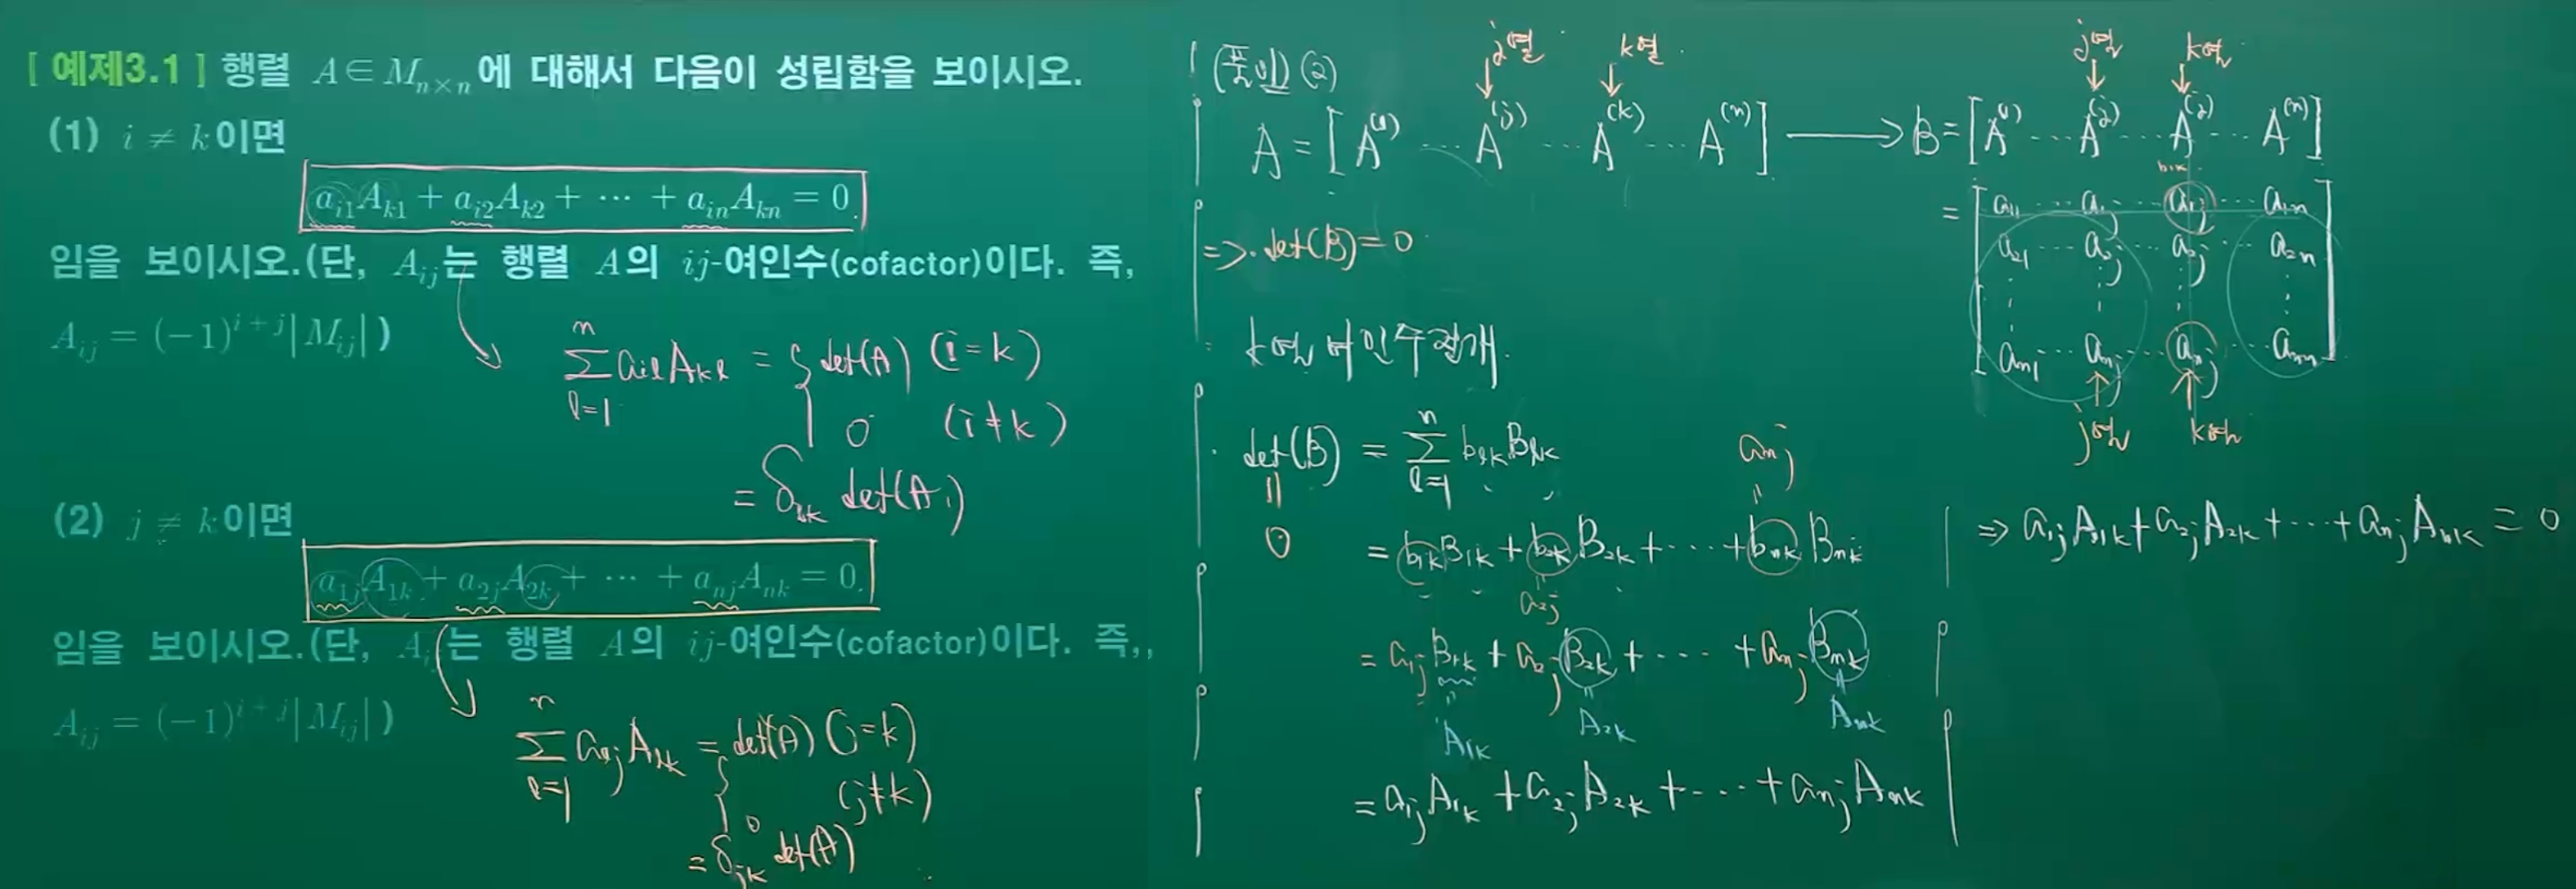 [ 예제3.1 ] 행렬 A∈M_{n×n}에 대해서 다음이 성립함을 보이시오.
(1) i ≠ k이면
a_{i1}A_{k1} + a_{i2}A_{k2} + ⋯ + a_{in}A_{kn} = 0.
임을 보이시오.(단, A_{ij}는 행렬 A의 ij-여인수(cofactor)이다. 즉,
A_{ij} = (−1)^{i+j}|M_{ij}|)
\sum_{l=1}^{n} a_{il}A_{kl} = { det(A) (i=k)
0 (i≠k)
= δ_{ik} det(A)
(2) j ≠ k이면
a_{1j}A_{1k} + a_{2j}A_{2k} + ⋯ + a_{nj}A_{nk} = 0.
임을 보이시오.(단, A_{i}는 행렬 A의 ij-여인수(cofactor)이다. 즉,,
A_{ij} = (−1)^{i+j}|M_{ij}|)
\sum_{l=1}^{n} a_{lj}A_{lk} = { det(A) (j=k)
0 (j≠k)
= δ_{jk} det(A)
(풀이) (2)
j열 k열
A = [A^{(1)} ⋯ A^{(j)} ⋯ A^{(k)} ⋯ A^{(n)}] → B = [A^{(1)} ⋯ A^{(j)} ⋯ A^{(j)} ⋯ A^{(n)}]
j열 k열
b_{1k}
= [ a_{11} ⋯ a_{1j} ⋯ a_{1j} ⋯ a_{1n}
a_{21} ⋯ a_{2j} ⋯ a_{2j} ⋯ a_{2n}
⋮ ⋮ ⋮ ⋮
a_{n1} ⋯ a_{nj} ⋯ a_{nj} ⋯ a_{nn} ]
j열 k열
⇒ det(B) = 0
k열 여인수전개.
det(B) = \sum_{l=1}^{n} b_{lk}B_{lk}
‖
0
a_{nj}
‖
= b_{1k}B_{1k} + b_{2k}B_{2k} + ⋯ + b_{nk}B_{nk}
‖
a_{2j}
= a_{1j}B_{1k} + a_{2j}B_{2k} + ⋯ + a_{nj}B_{nk}
‖ ‖ ‖
A_{1k} A_{2k} A_{nk}
= a_{1j}A_{1k} + a_{2j}A_{2k} + ⋯ + a_{nj}A_{nk}
⇒ a_{1j}A_{1k} + a_{2j}A_{2k} + ⋯ + a_{nj}A_{nk} = 0